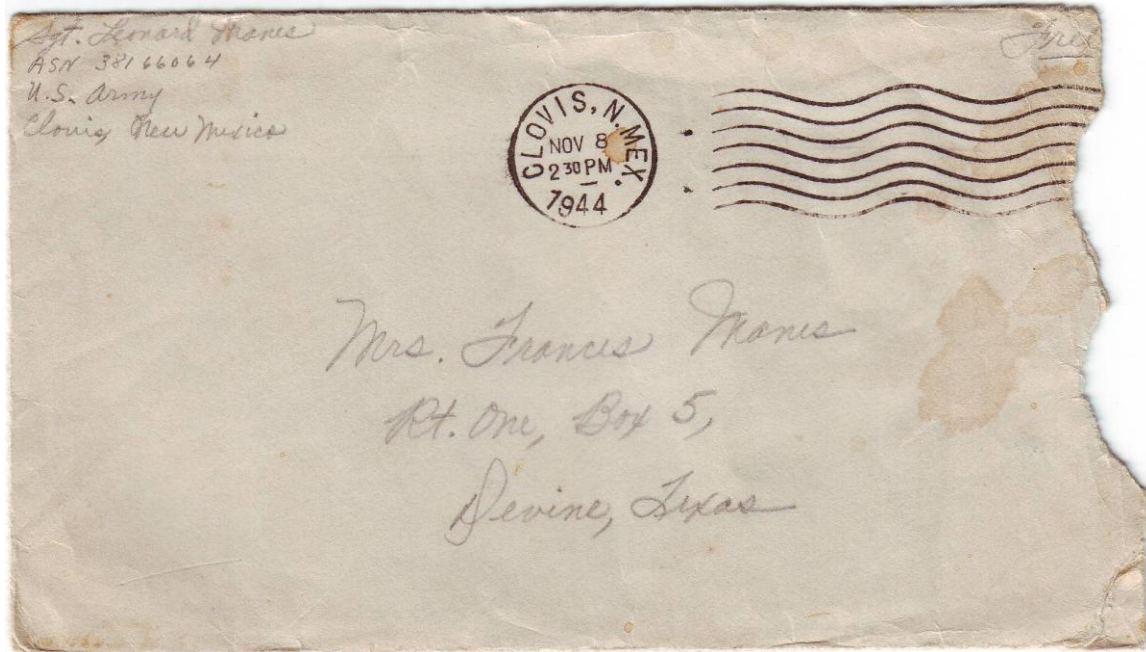 Sgt. Leonard Manes
ASN 38166064
U.S. Army
Clovis, New Mexico
Free
CLOVIS, N. MEX.
NOV 8
2 30 PM
1944
Mrs. Frances Manes
Rt. One, Box 5,
Devine, Texas